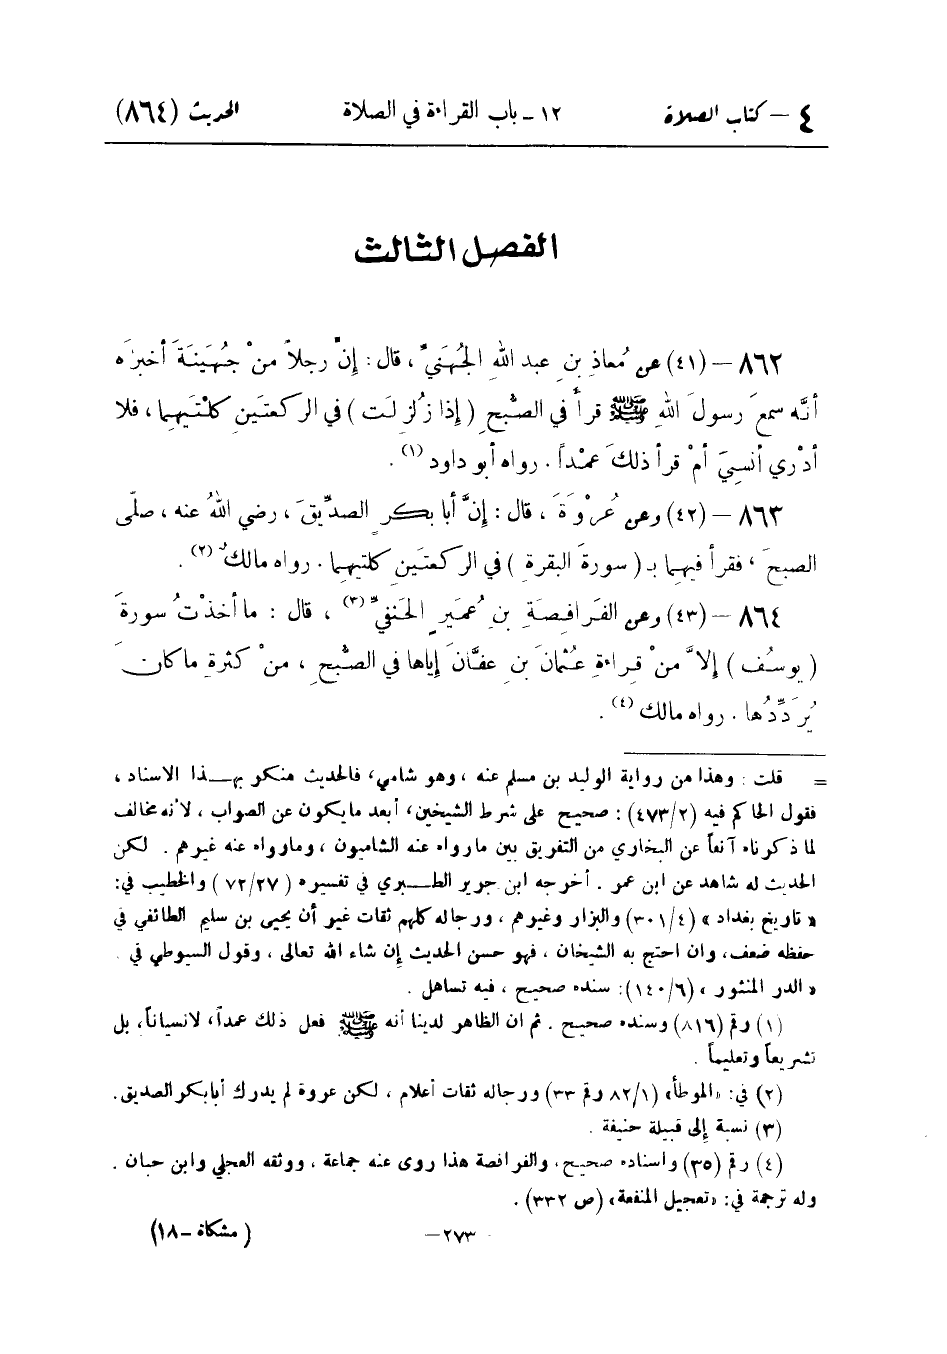 ٤ – كتاب الصلاة ١٢ ـ باب القراءة في الصلاة الحديث (٨٦٤)
الفصل الثالث
٨٦٢ – (٤١) عن مُعاذِ بنِ عبد اللهِ الجُهَنيِّ ، قال : إنَّ رجلاً منْ جُهَينَةَ أخبرَه
أنَّه سمعَ رسولَ اللهِ ﷺ قرأ في الصُّبحِ ( إذا زُلزِلَت ) في الركعتَينِ كلْتَيهِما ، فلا
أدْري أنَسِيَ أمْ قرأ ذلكَ عمْداً . رواه أبو داود (١) .
٨٦٣ – (٤٢) وعن عُروَةَ ، قال : إنَّ أبا بكرٍ الصدِّيقَ ، رضي اللهُ عنه ، صلَّى
الصبحَ ، فقرأ فيهِما بـ ( سورةِ البقرةِ ) في الركعتَينِ كلتَيهِما . رواه مالكٌ (٢) .
٨٦٤ – (٤٣) وعن الفَرافِصَةِ بنِ عُمَيرٍ الحَنفيِّ (٣) ، قال : ما أخذْتُ سورةَ
( يوسُف ) إلاَّ منْ قِراءةِ عُثمانَ بنِ عفَّانَ إياها في الصُّبحِ ، منْ كثرةِ ما كانَ
يُرَدِّدُها . رواه مالك (٤) .
= قلت : وهذا من رواية الوليد بن مسلم عنه ، وهو شامي، فالحديث منكر بهـذا الاسناد ،
فقول الحاكم فيه (٤٧٣/٢) : صحيح على شرط الشيخين، أبعد مايكون عن الصواب ، لأنه مخالف
لما ذكرناه آنفاً عن البخاري من التفريق بين مارواه عنه الشاميون ، ومارواه عنه غيرهم . لكن
الحديث له شاهد عن ابن عمر . أخرجه ابن جرير الطـبري في تفسيره ( ٧٢/٢٧ ) والخطيب في:
« تاريخ بغداد » (٣٠١/٤) والبزار وغيرهم ، ورجاله كلهم ثقات غير أن يحيى بن سليم الطائفي في
حفظه ضعف، وان احتج به الشيخان ، فهو حسن الحديث إن شاء الله تعالى ، وقول السيوطي في
« الدر المنثور » (١٤٠/٦): سنده صحيح ، فيه تساهل .
(١) رقم (٨١٦) وسنده صحيح . ثم ان الظاهر لدينا أنه ﷺ فعل ذلك عمداً، لانسياناً، بل
تشريعاً وتعليماً .
(٢) في: «الموطأ» (٨٢/١ رقم ٣٣) ورجاله ثقات أعلام ، لكن عروة لم يدرك أبابكر الصديق.
(٣) نسبة إلى قبيلة حنيفة .
(٤) رقم (٣٥) واسناده صحيح، والفرافصة هذا روى عنه جماعة ، ووثقه العجلي وابن حبان .
وله ترجمة في: «تعجيل المنفعة» (ص ٣٣٢) .
–٢٧٣ ( مشكاة – ١٨)